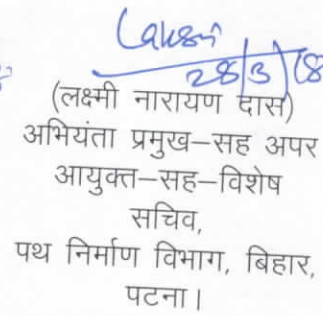 Lakshmi
28/3/18
(लक्ष्मी नारायण दास)
अभियंता प्रमुख–सह अपर
आयुक्त–सह–विशेष
सचिव,
पथ निर्माण विभाग, बिहार,
पटना।